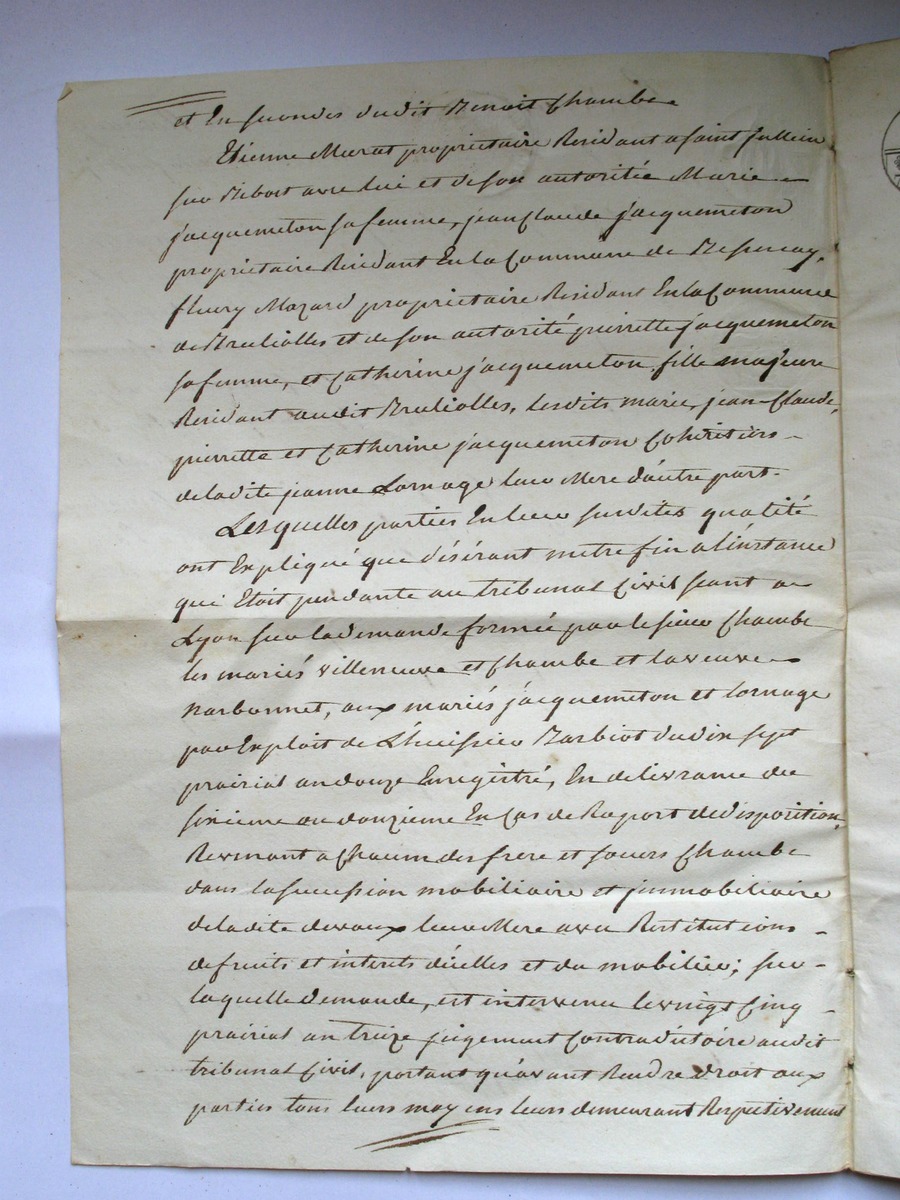 et En secondes dudit Benoit Chambe
Etienne Murat propriétaire Residant a saint jullien
sur Bibost avec lui et de son autoritée Marie
jacquemeton sa femme, jean Claude jacquemeton
propriétaire Residant En la Commune de Bessenay,
fleury Mazard propriétaire Residant En la Commune
de Bruliolles et de son autorité pierrette jacquemeton
sa femme, et Catherine jacquemeton fille majeure
Residant audit Brulioles, lesdits marie, jean-Claude,
pierrette et Catherine jacquemeton Cohéritiers
de ladite jeanne Lornage leur Mere d'autre part.
Lesquelles parties En leur susdites qualité
ont Expliqué que désérant metre fin a l'instance
qui Etoit pendante au tribunal Civil seant a
Lyon sur la demande formée par le sieur Chambe
les mariés villeneuve et Chambe et la veuve
Narbonnet, aux mariés jacquemeton et lornage
par Exploit de L'huissier Barbiot du dix sept
prairial an douze Enregistré, En delivrance du
sixieme au douzieme En Cas de Raport de disposition,
Revenant a Chacun des frere et soeurs Chambe
dans la succession mobiliaire et jmmobiliaire
de ladite devaux leur Mere avec Restitutions
de fruits et interets d'icelles et du mobilier; sur
laquelle demande, est intervenu le vingt Cinq
prairial an treize jugement Contradictoire audit
tribunal Civil, portant qu'avant Rendre droit aux
parties tous leurs moyens leurs demeurant Respectivement